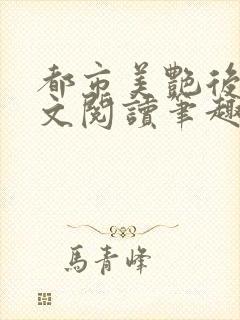 都市美艷後
文閱讀筆趣
馬青峰